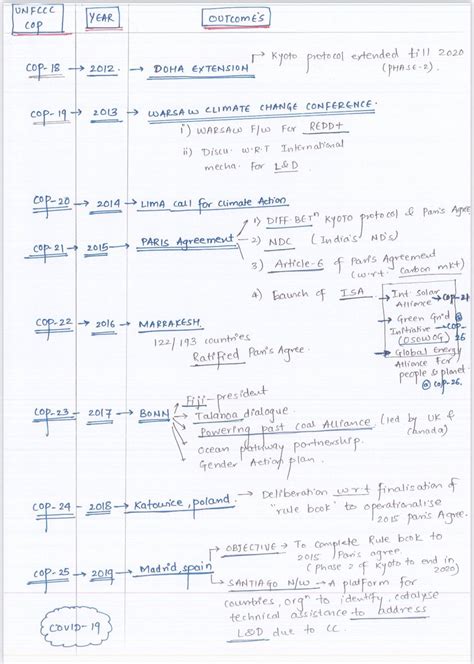 UNFCCC COP YEAR OUTCOME'S
COP-18 → 2012 → DOHA EXTENSION → Kyoto protocol extended till 2020
(PHASE-2)
COP-19 → 2013 → WARSAW CLIMATE CHANGE CONFERENCE.
i) WARSAW F/W For REDD+
ii) Discu. W.R.T International
mecha. For L&D
COP-20 → 2014 → LIMA Call for Climate Action
COP-21 → 2015 → PARIS Agreement
1) DIFF. BETn Kyoto protocol & Paris Agree
2) NDC (India's ND's)
3) Article-6 of Paris Agreement
(w.r.t. carbon mkt)
4) Launch of ISA
→ Int. Solar
Alliance → COP-21
→ Green Grid @
Initiative → COP-26
(OSOWOG)
→ Global Energy
Alliance For
people & planet
@ COP-26.
COP-22 → 2016 → MARRAKESH
122/193 countries
Ratified Paris Agree.
COP-23 → 2017 → BONN
Fiji - president
Talanoa dialogue.
Powering past coal Alliance. (led by UK &
Canada)
Ocean pathway partnership.
Gender Action plan.
COP-24 → 2018 → Katowice, poland. → Deliberation w.r.t finalisation of
"rule book" to operationalise
2015 paris Agree.
COP-25 → 2019 → Madrid, spain
→ OBJECTIVE → To complete Rule book to
2015 Paris agree.
(Phase 2 of Kyoto to end in
2020)
→ SANTIAGO N/W → A platform for
countries, orgn to identify, catalyse
technical assistance to address
L&D due to CC.
COVID-19